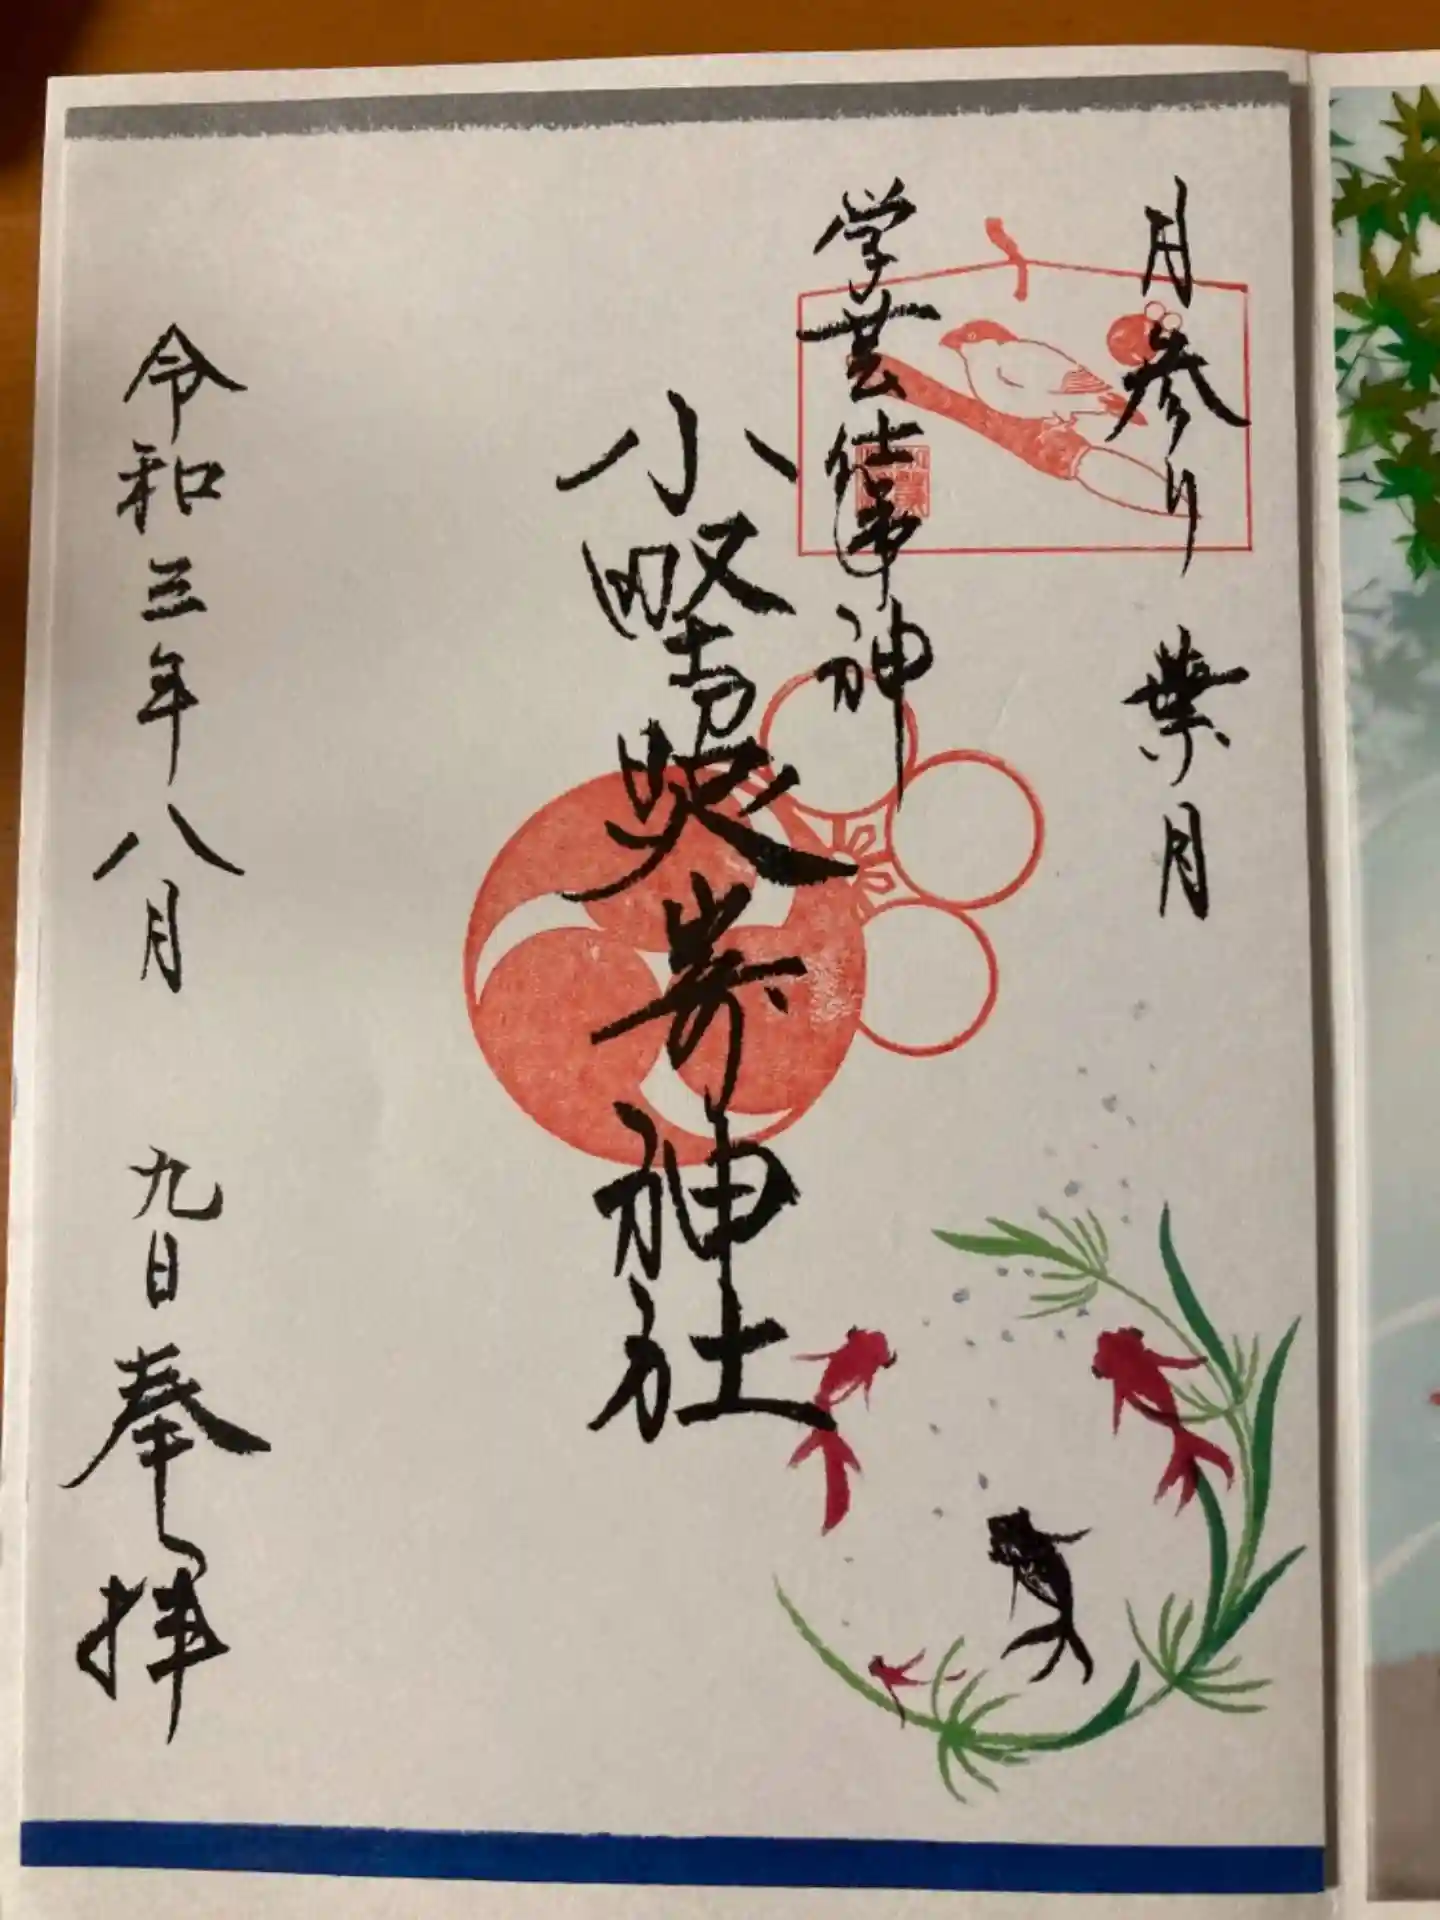 月参り 葉月
学芸仕事神
小野照崎神社
令和三年八月 九日 奉拝